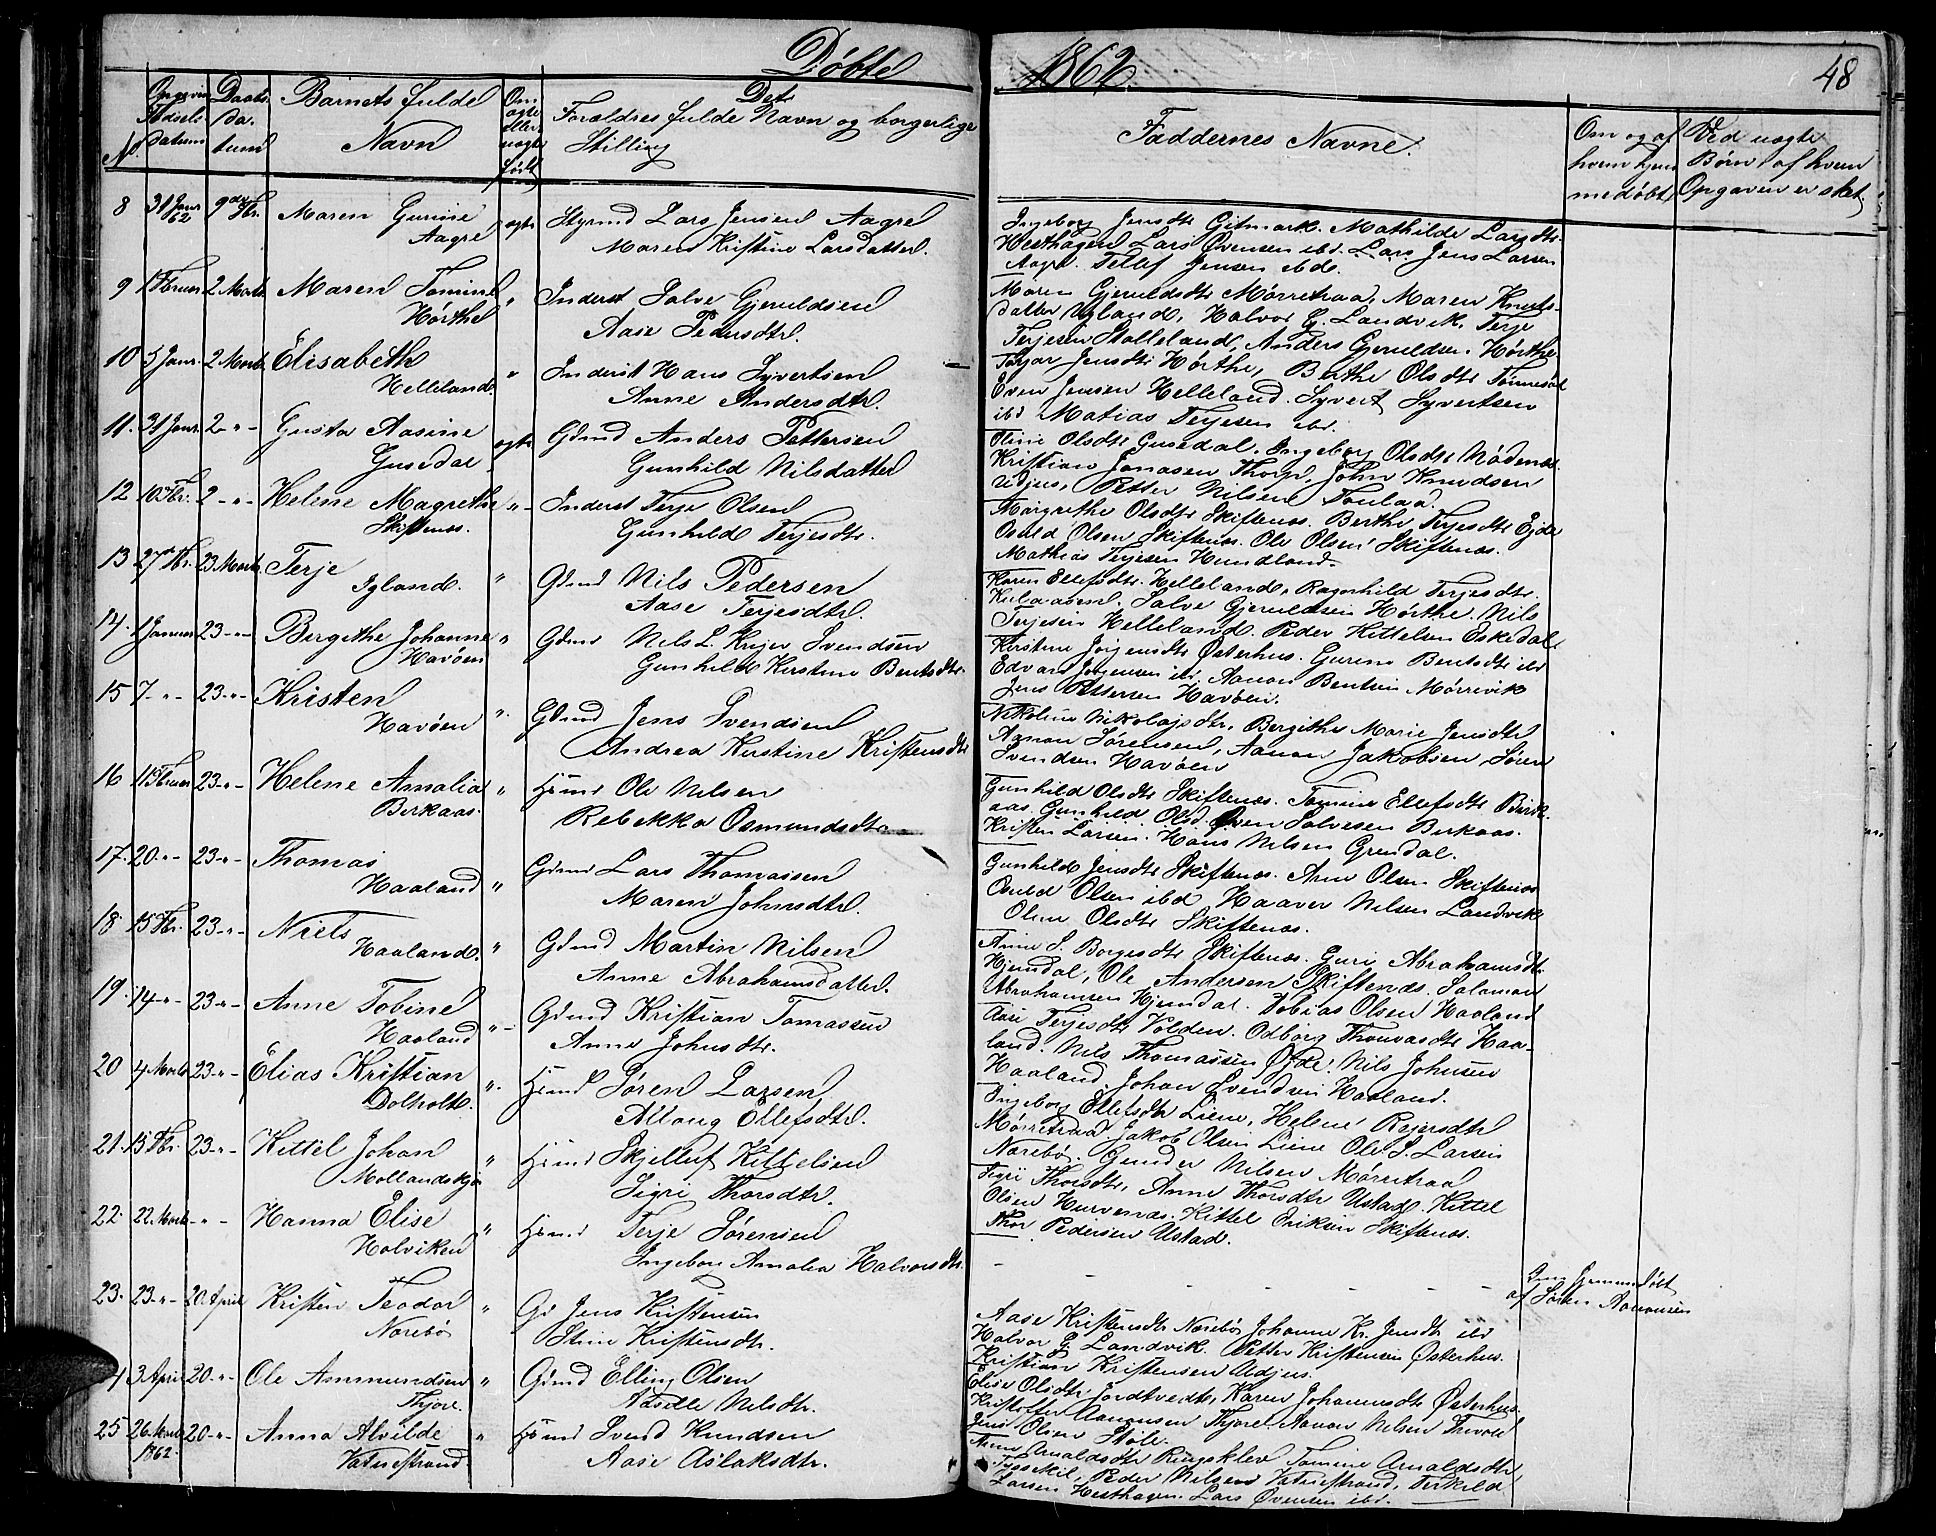 Døbte
1862.
48
No.
Fødsels Datum
Daabs Datum
Barnets fulde Navn
Om ægte eller uægte født
Forældres fulde Navn og borgerlige Stilling
Faddernes Navne.
Om og af hvem hjemmedøbt
Ved uægte Børn af hvem Opgaven er sket.
8 31 Janr 62 9de Fbr. Maren Gurine Aagre ægte Styrmd Lars Jensen Aagre
Maren Kristine Larsdatter.
Ingeborg Jensdtr Gitmark. Mathilde Larsdtr.
Hesthagen Lars Øvensen ibd. Lars Jens Larsen
Aagre. Tellef Jensen ibd.
9 1 Februar 2 Marts Maren Tomine Hørthe " Inderst Salve Gjeruldsen
Aase Pedersdtr.
Maren Gjeruldsdtr Mørretraa, Maren Knuts-
datter Ugland, Halvor G. Landvik, Terje
Terjesen Stalleland, Anders Gjeruldsen Hørthe
10 5 Janr. 2 Marts Elisabeth Helleland. " Inderst Hans Syvertsen
Anne Andersdtr.
Torjar Jensdtr Hørthe, Berthe Olsdtr Tønnesøl
Even Jensen Helleland. Syvert Syvertsen
ibd Matias Terjesen ibd.
11. 31 Janr. 2 - " - Gusta Aasine Gusedal ægte Gdmd Anders Pettersen
Gunhild Nilsdatter
Oline Olsdtr Gusedal. Ingeborg Olsdtr Nødenæs.
Kristian Jonassen Thorp, John Knudsen
Udjus, Petter Nilsen
12 10 Fbr. 2 - " - Helene Magrethe Skiftenæs. " Inderst Terje Olsen
Gunhild Terjesdtr.
Margrethe Olsdtr Skiftenæs. Berthe Terjesdtr Ejde
Osuld Olsen Skiftenæs. Ole Olsen Skiftenæs.
Mathias Terjesen Hundland.
13 27 Fbr. 23 Marts. Terje Igland. " Gdmd Nils Pedersen
Aase Terjesdtr.
Karen Ellefsdtr. Helleland, Ragnhild Terjesdtr.
Salve Gjeruldsen Hørthe. Nils
Terjesen Helleland. Peder Kittelsen Eskedal
14. 1 Januar 23 - " - Bergithe Johanne Havøen " Gdmd Nils L. Krijer Svendsen
Gunhild Kerstine Bentsdtr.
Kirstine Jørgensdtr Østerhus. Gurine Bentsdtr ibd
Edvart Jørgensen ibd. Aanon Bentsen Mørrevik
Jens Pettersen Havøen.
15 7 - " - 23 - " - Kristen Havøen " Gdmd Jens Svendsen
Andrea Kirstine Kristensdtr
Nikoline Nikolajsdtr, Bergithe Marie Jensdtr
Aanon Sørensen, Aanon Jakobsen, Søren
Svendsen Havøen
16 11 Februar 23 - " - Helene Amalia Birkaas. " Hsmd Ole Nilsen
Rebekka Osmundsdtr.
Gunhild Olsdtr Skiftenæs. Tomine Ellefsdtr Birk
aas. Gunhild Olsd. Øven Salvesen Birkaas.
Kristen Larsen. Hans Nilsen Grendal.
17. 20 - " - 23 - " - Thomas Haaland " Gdmd Lars Thomassen
Maren Johnsdtr.
Gunhild Jensdtr Skiftenæs. Arne Olsen Skiftenæs
Osuld Olsen ibd Haaver Nilsen Landvik
Oline Olsdtr Skiftenæs.
18. 15 Fbr. 23 - " - Niels Haaland. " Gdmd Martin Nilsen
Anne Abrahamsdatter.
Anne S. Borgesdtr Skiftenæs. Guri Abrahamsdtr
Hjemdal, Ole Andersen Skiftenæs. Salomon
Abrahamsen Hjemdal. Tobias Olsen Haaland
19. 14 - " - 23 - " - Anne Tobine Haaland " Gdmd Kristian Tomassen
Anne Johnsdtr.
Aase Terjesdtr Volden. Odborg Thomasdtr Haa-
land. Nils Thomassen Øyde. Nils Johnsen
Haaland. Johan Svendsen Haaland.
20 4 Marts 23 - " - Elias Kristian Dolholt. " Hsmd Søren Larsen
Altong Ellefsdtr.
Ingeborg Ellefsdtr Liene, Helene Reiersdtr
Mørretraa, Jakob Olsen Liene Ole S. Larsen
Norebø. Gunder Nilsen Mørretraa
21. 15 Fbr. 23 - " - Kittel Johan Mollandskjø " Hsmd Skjelluf Kittelsen
Sigri Thorsdtr.
Sigri Thorsdtr, Anne Thorsdtr Ustad. Kittel
Olsen Hurvenæs. Kittel Eriksen Skiftenæs.
Thor Pedersen Ustad.
22. 22 Marts - " - Hanna Elise Holviken " Hsmd Terje Sørensen
Ingeborg Amalia Halvorsdtr.
- - - - -
Hjemmedøbt
af Søren Aanonsen
23. 23 - " - 20. April Kristen Teodor Norebø " Gd Jens Kristensen
Stine Kristensdtr.
Aase Kristensdtr Norebø Johanne Kr. Jensdtr ibd
Halvor G. Landvik. Petter Kristensen Østerhus.
Kristian Kristensen Udjus.
4 3 April 20 - " - Ole Ammundsen Thjore. " Gdmd Elling Olsen
Nilsdtr.
Elise Olsdtr Jordtvedt, Karen Johannesdtr Østerhus
Kristoffer Aanonsen Thjore. Aanon Nilsen
Jens Olsen Støle.
25 26 Marts 1862 20 - " - Anna Alvilde Vatnestrand " Hsmd Svend Knudsen
Aase Aslaksdtr.
Anne Arnoldsdtr Ringsklev Tomine Arnoldsdtr,
Peder Nilsen Vatnestrand, Terkild
Larsen Hesthagen. Lars Øvensen ibd.